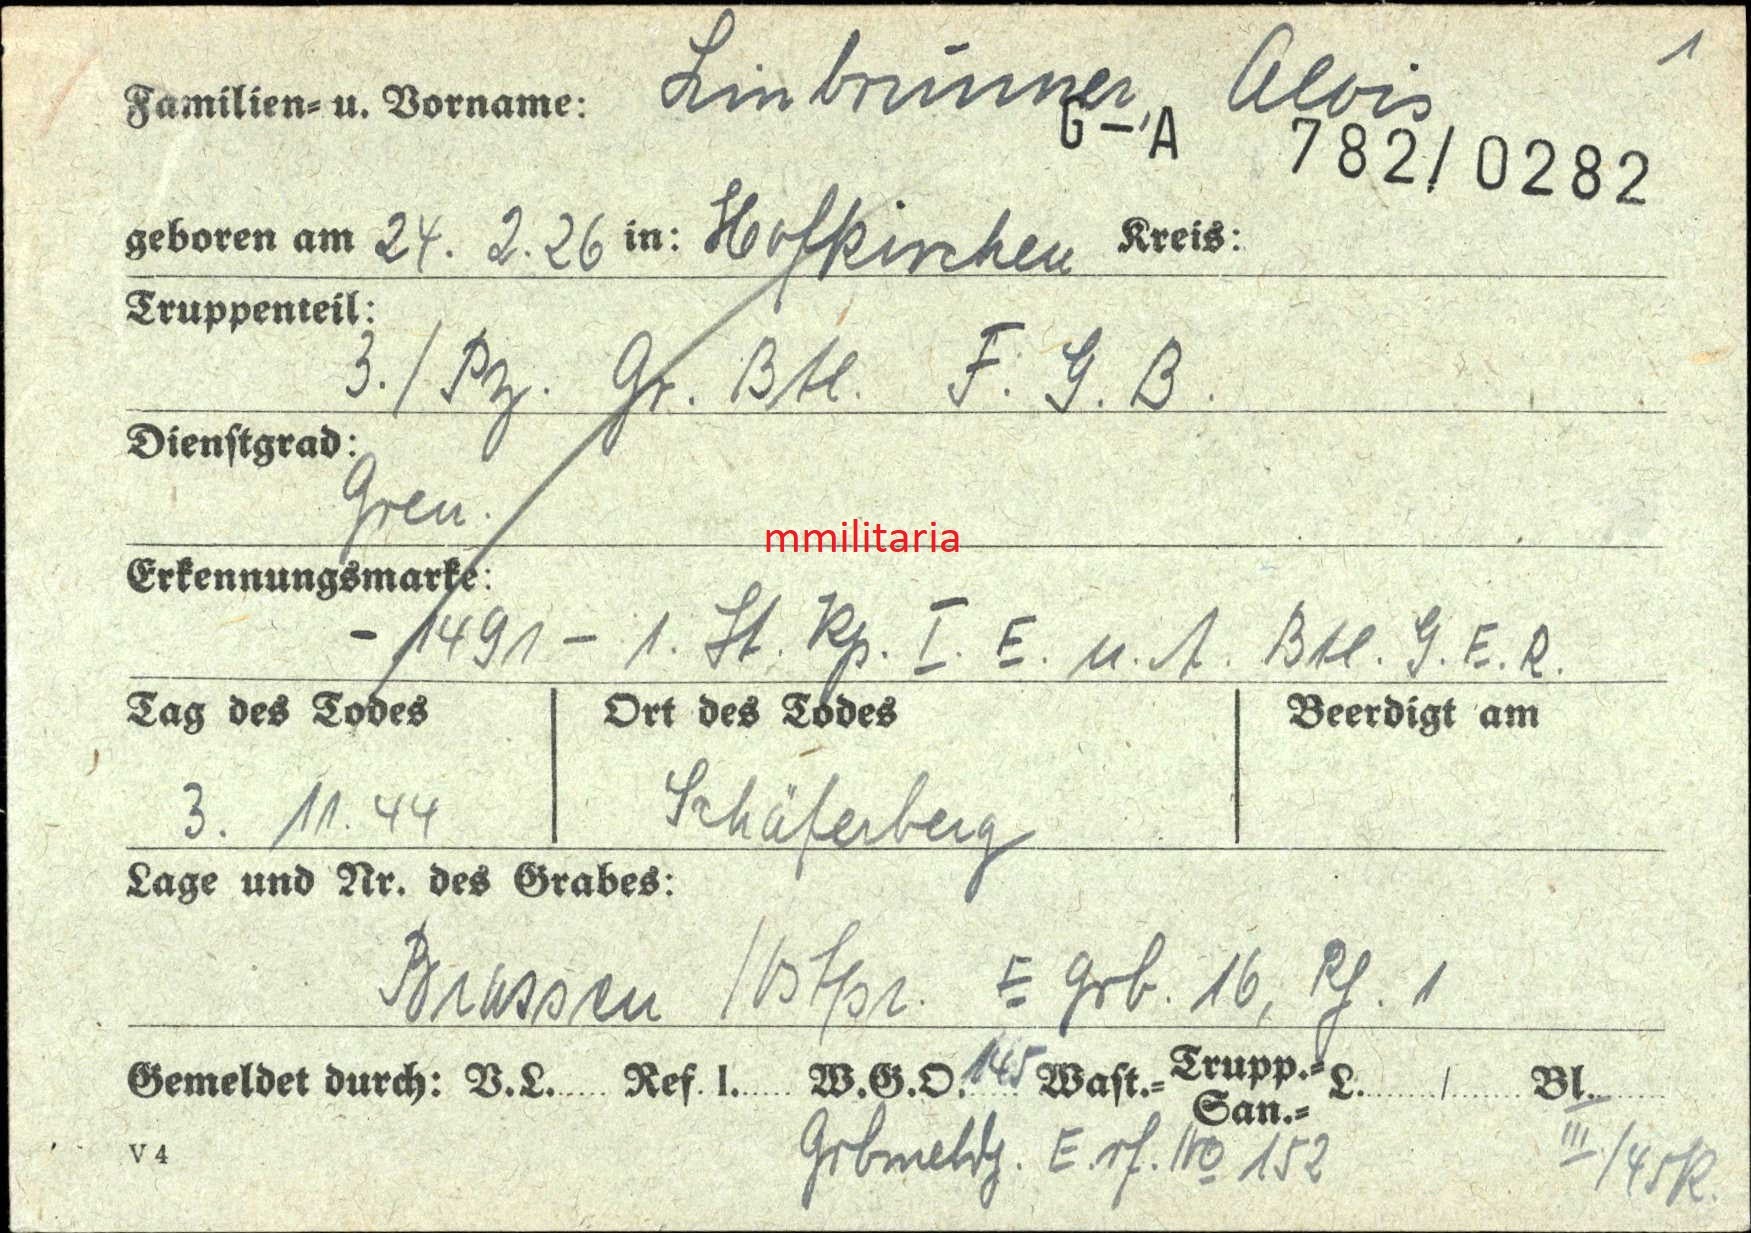 1
Familien- u. Vorname: Linbrunner, Alois
G-A 782/0282
geboren am 24. 2. 26 in: Hofkirchen Kreis:
Truppenteil:
3./ Pz. Gr. Btl. F. G. B.
Dienstgrad:
Gren.
mmilitaria
Erkennungsmarke:
- 1491 - 1. St. Kp. I. E. u. A. Btl. G. E. R.
Tag des Todes Ort des Todes Beerdigt am
3. 11. 44 Schäferberg
Lage und Nr. des Grabes:
Brassen /Ostpr. E Grb. 16, Rh. 1
Gemeldet durch: V.L..... Ref. I...... W.G.O. 145 Wast.- Trupp.- San.- L......../....... Bl.......
V 4 Grbmeldg. E. 152 III/45 K.